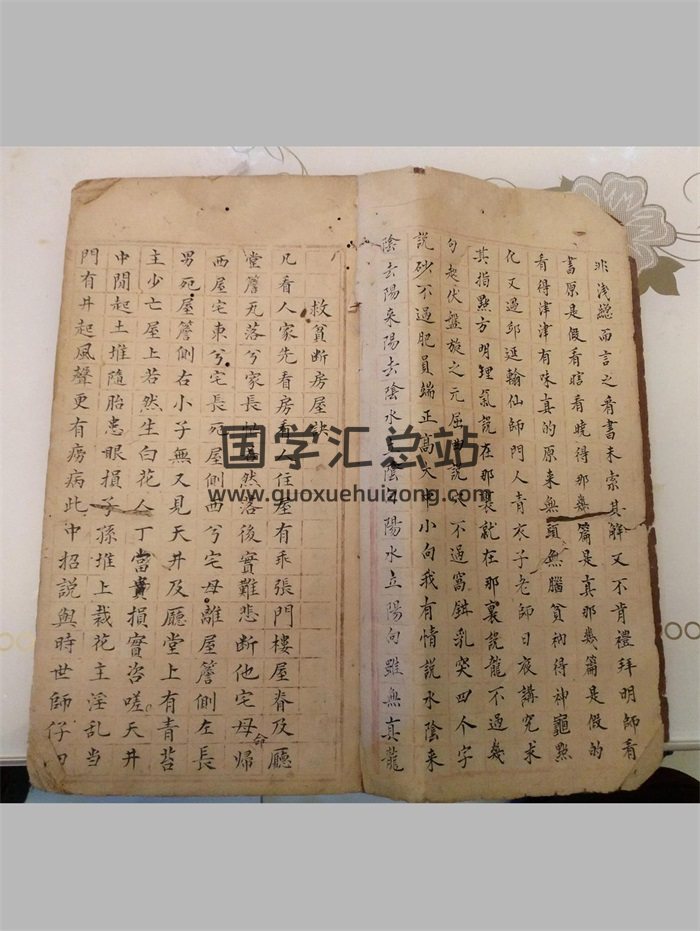 非浅縂而言之看書未索其解又不肯禮拜明師看
書原是假看瞎看曉得那幾篇是真那幾篇是假的
看得津津有味真的原来無頭無腦貧衲得神龜點
化又過邱延翰仙師門人青衣子老師日夜講究求
其指點方明理氣說在那裏就在那裏說龍不過幾
句起伏盤旋之元屈曲說穴不過窩鉗乳突四个字
說砂不過肥員端正高大小向我有情說水陰来
陰去陽来陽去陰水陰陽水立陽向雖無真龍
救貧断房屋訣
凡看人家先看房看人住屋有乖張門楼屋脊及廳
堂簷死落兮家長怕然落後實難悲断他宅母命歸
西屋宅東兮宅長死屋側西兮宅母離屋簷側左長
男死屋簷側右小子無又見天井及廳堂上有青苔
主少亡屋上若然生白花人丁當貴損實咨嗟天井
中間起土堆隨胎患眼損子孫堆上栽花主淫乱当
門有井起風聲更有癆病此中招説與時世師仔
国学汇总站
www.guoxuehuizong.com